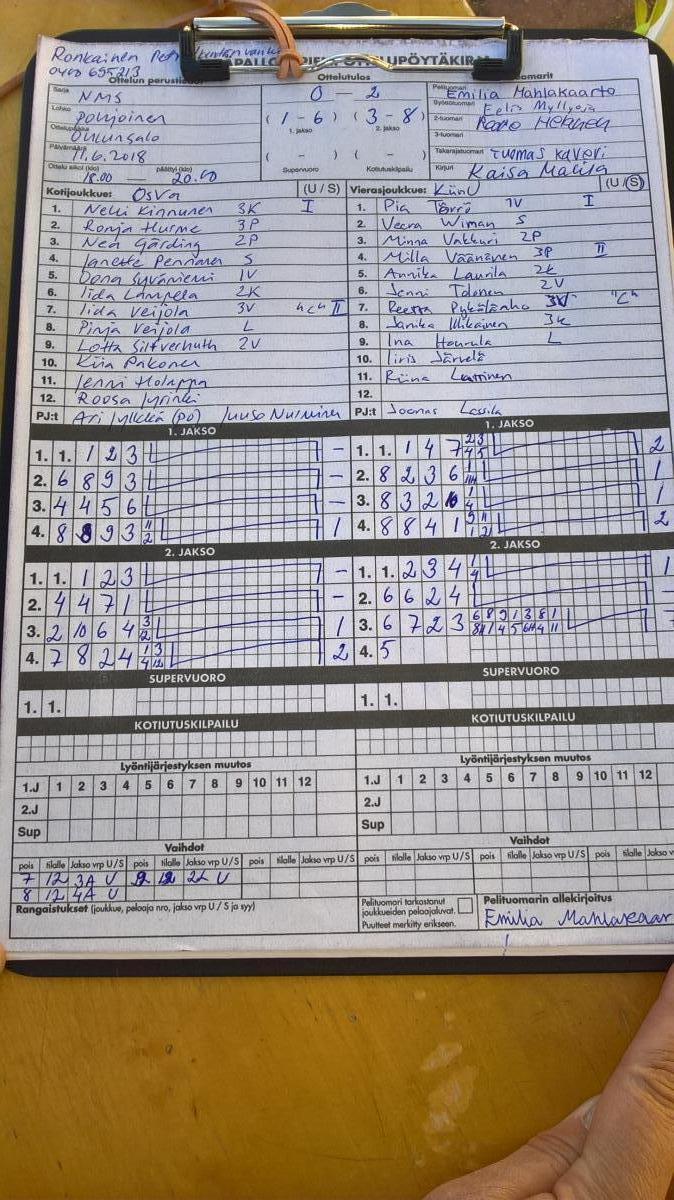 Ronkainen
0400 655213
OTTELUPÖYTÄKIRJA
Ottelun perustiedot
Ottelutulos
Sarja NMS
0 - 2
Pelituomari Emilia Mahlakaarto
Lohko Pohjoinen
(1 - 6) (3 - 8)
1. jakso 2. jakso
Syöttötuomari Eelis Myllyoja
Ottelupaikka Oulunsalo
2-tuomari
3-tuomari
Päivämäärä 11.6.2018
( - ) ( - )
Supervuoro Kotiutuskilpailu
Takarajatuomari Tuomas
Ottelu alkoi (klo) 18.00 — päättyi (klo) 20.00
Kirjuri Kaisa
Kotijoukkue: OsVa (U / S)
1. Nelli Kinnunen 3K I
2. Ronja Hurme 3P
3. Nea Gärding 2P
4. Janette Pennanen S
5. Oona Syväniemi 1V
6. Iida Lampela 2K
7. Iida Veijola 3V "C" II
8. Pinja Veijola L
9. Lotta Silfverhuth 2V
10. Kiia Pakonen
11. Jenni Holappa
12. Roosa Jyrinki
PJ:t Ari Jylkkä (PO) Juuso Nurminen
Vierasjoukkue: KiinU (U / S)
1. Pia Törrö 1V I
2. Veera Wiman S
3. Minna Vakkuri 2P
4. Milla Väänänen 3P II
5. Annika Laurila 2K
6. Jenni Tolonen 2V
7. Reetta 3V "C"
8. Janika Illikainen 3K
9. Ina L
10. Iiris Järvelä
11. Riina
12.
PJ:t Joonas Lassila
1. JAKSO
1. 1. 1 2 3 -
2. 6 8 9 3 -
3. 4 4 5 6 -
4. 8 8 9 3 11 2 1
2. JAKSO
1. 1. 1 2 3 -
2. 4 4 7 1 -
3. 2 10 6 4 3 2 1
4. 7 8 2 4 1 3 4 12 2
SUPERVUORO
1. 1.
KOTIUTUSKILPAILU
1. JAKSO
1. 1. 1 4 7 2 3 4 5 2
2. 8 2 3 6 1
3. 8 3 2 10 1 4 1
4. 8 8 4 1 2
2. JAKSO
1. 1. 2 3 4 1 4 1
2. 6 6 2 4 -
3. 6 7 2 3 6 8 9 1 3 8 1
4. 5
SUPERVUORO
1. 1.
KOTIUTUSKILPAILU
Lyöntijärjestyksen muutos
1.J 1 2 3 4 5 6 7 8 9 10 11 12
2.J
Sup
Lyöntijärjestyksen muutos
1.J 1 2 3 4 5 6 7 8 9 10 11 12
2.J
Sup
Vaihdot
pois tilalle Jakso vrp U/S pois tilalle Jakso vrp U/S pois tilalle Jakso vrp U/S
7 12 3A U 9 12 2L U
8 12 4A U
Vaihdot
pois tilalle Jakso vrp U/S pois tilalle Jakso vrp U/S pois tilalle Jakso v
Rangaistukset (joukkue, pelaaja nro, jakso vrp U / S ja syy)
Pelituomari tarkastanut
joukkueiden pelaajaluvat.
Puutteet merkitty erikseen.
Pelituomarin allekirjoitus
Emilia Mahlakaar